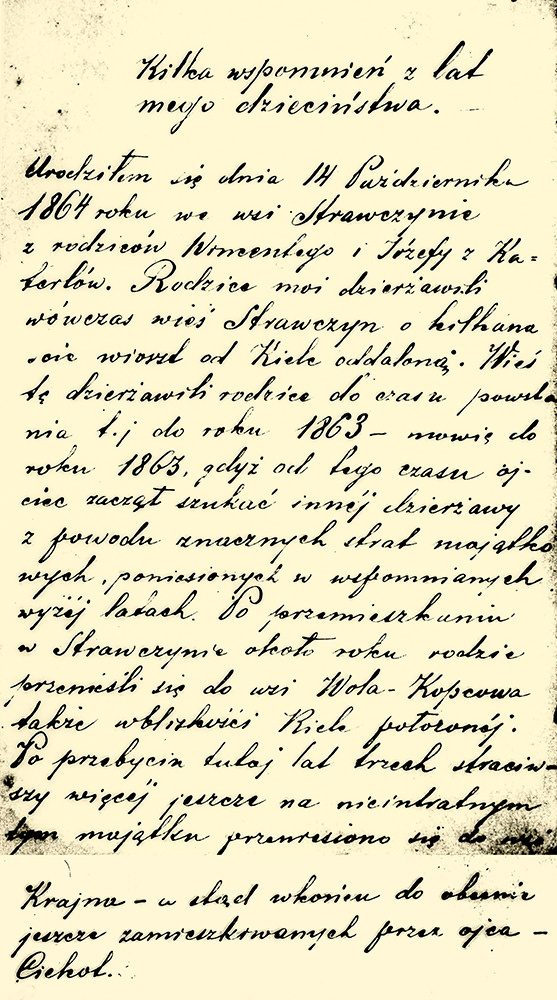 Kilka wspomnień z lat
mego dzieciństwa.
Urodziłem się dnia 14 Października
1864 roku we wsi Strawczynie
z rodziców Wincentego i Józefy z Ka=
terlów. Rodzice moi dzierżawili
wówczas wieś Strawczyn o kilkana
ście wiorst od Kielc oddaloną. Wieś
tę dzierżawili rodzice do czasu powsta
nia t.j do roku 1863 – mowię do
roku 1863, gdyż od tego czasu oj-
ciec zaczął szukać innéj dzierżawy
z powodu znacznych strat majątko
wych, poniesionych w wspomnianych
wyżéj latach. Po przemieszkaniu
w Strawczynie około roku rodzice
przenieśli się do wsi Wola-Kopcowa
także wblizkości Kielc położonéj.
Po przebyciu tutaj lat trzech straciw-
szy więcéj jeszcze na nieintratnym
tym majątku przeniesiono się do wsi
Krajna – a stąd wkońcu do obecnie
jeszcze zamieszkiwanych przez ojca –
Ciekot.